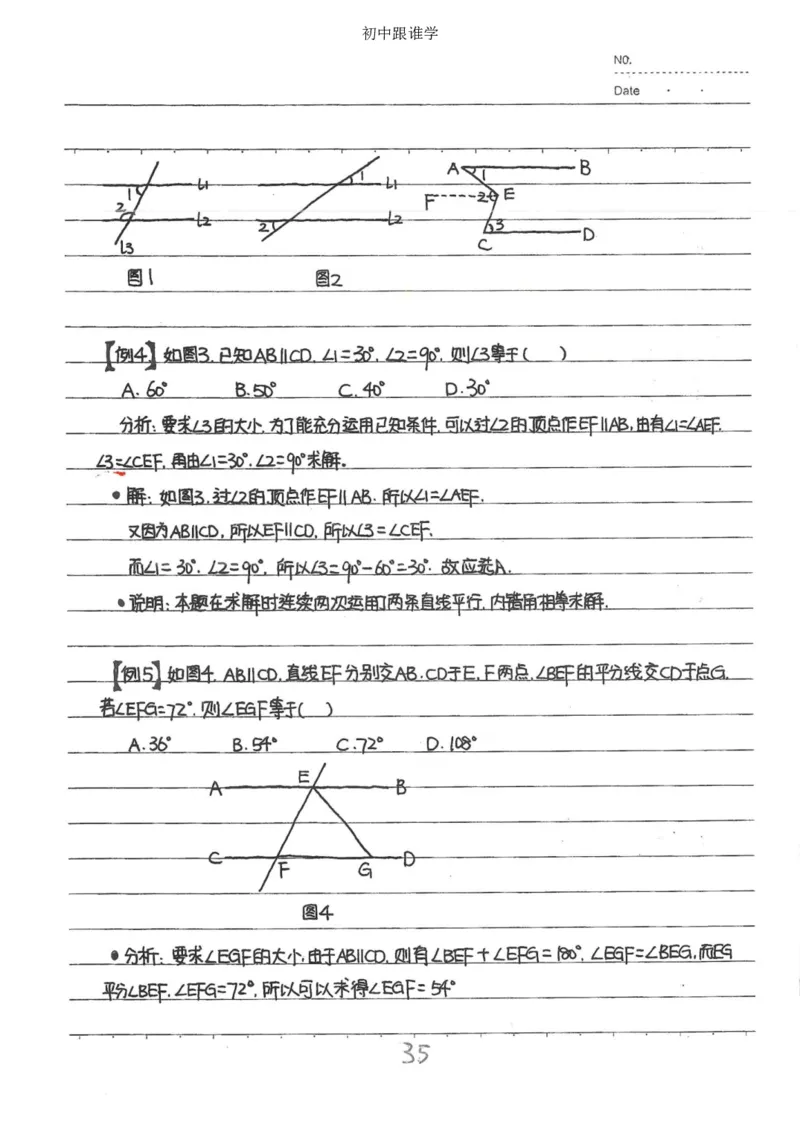 初中跟谁学
NO.
Date · ·
1 L1
2 L2
L3
图1
1 L1
2 L2
图2
A 1 B
F 2 E
3
C D
【例4】如图3.已知AB∥CD.∠1=30°.∠2=90°.则∠3等于( )
A.60° B.50° C.40° D.30°
分析:要求∠3的大小.为了能充分运用已知条件.可以过∠2的顶点作EF∥AB,由有∠1=∠AEF.
∠3=∠CEF,再由∠1=30°.∠2=90°求解。
•解:如图3.过∠2的顶点作EF∥AB.所以∠1=∠AEF.
又因为AB∥CD,所以EF∥CD,所以∠3=∠CEF.
而∠1=30°.∠2=90°.所以∠3=90°-60°=30°.故应选A.
•说明:本题在求解时连续两次运用了两条直线平行.内错角相等求解.
【例5】如图4.AB∥CD,直线EF分别交AB.CD于E,F两点.∠BEF的平分线交CD于点G.
若∠EFG=72°.则∠EGF等于( )
A.36° B.54° C.72° D.108°
E
A B
C F G D
图4
•分析:要求∠EGF的大小,由于AB∥CD.则有∠BEF+∠EFG=180°.∠EGF=∠BEG,而EG
平分∠BEF.∠EFG=72°,所以可以求得∠EGF=54°
35